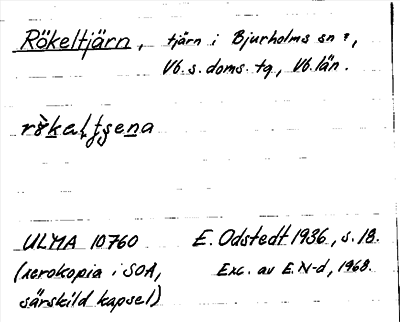 Rökeltjärn, tjärn i Bjurholms sn?,
Vb. s. doms. tg., Vb. län.
ULMA 10760 E. Odstedt 1936, s. 18.
(xerokopia i SOA, Exc. av E. N-d, 1968.
särskild kapsel)